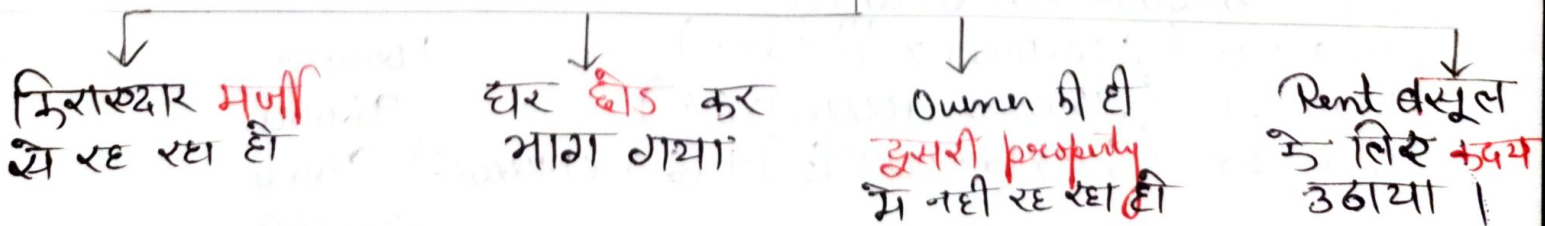 किराएदार मर्जी
से रह रहा हो
घर छोड कर
भाग गया
Owner की ही
दूसरी property
मे नही रह रहा हो
Rent वसूल
के लिए कदम
उठाया ।